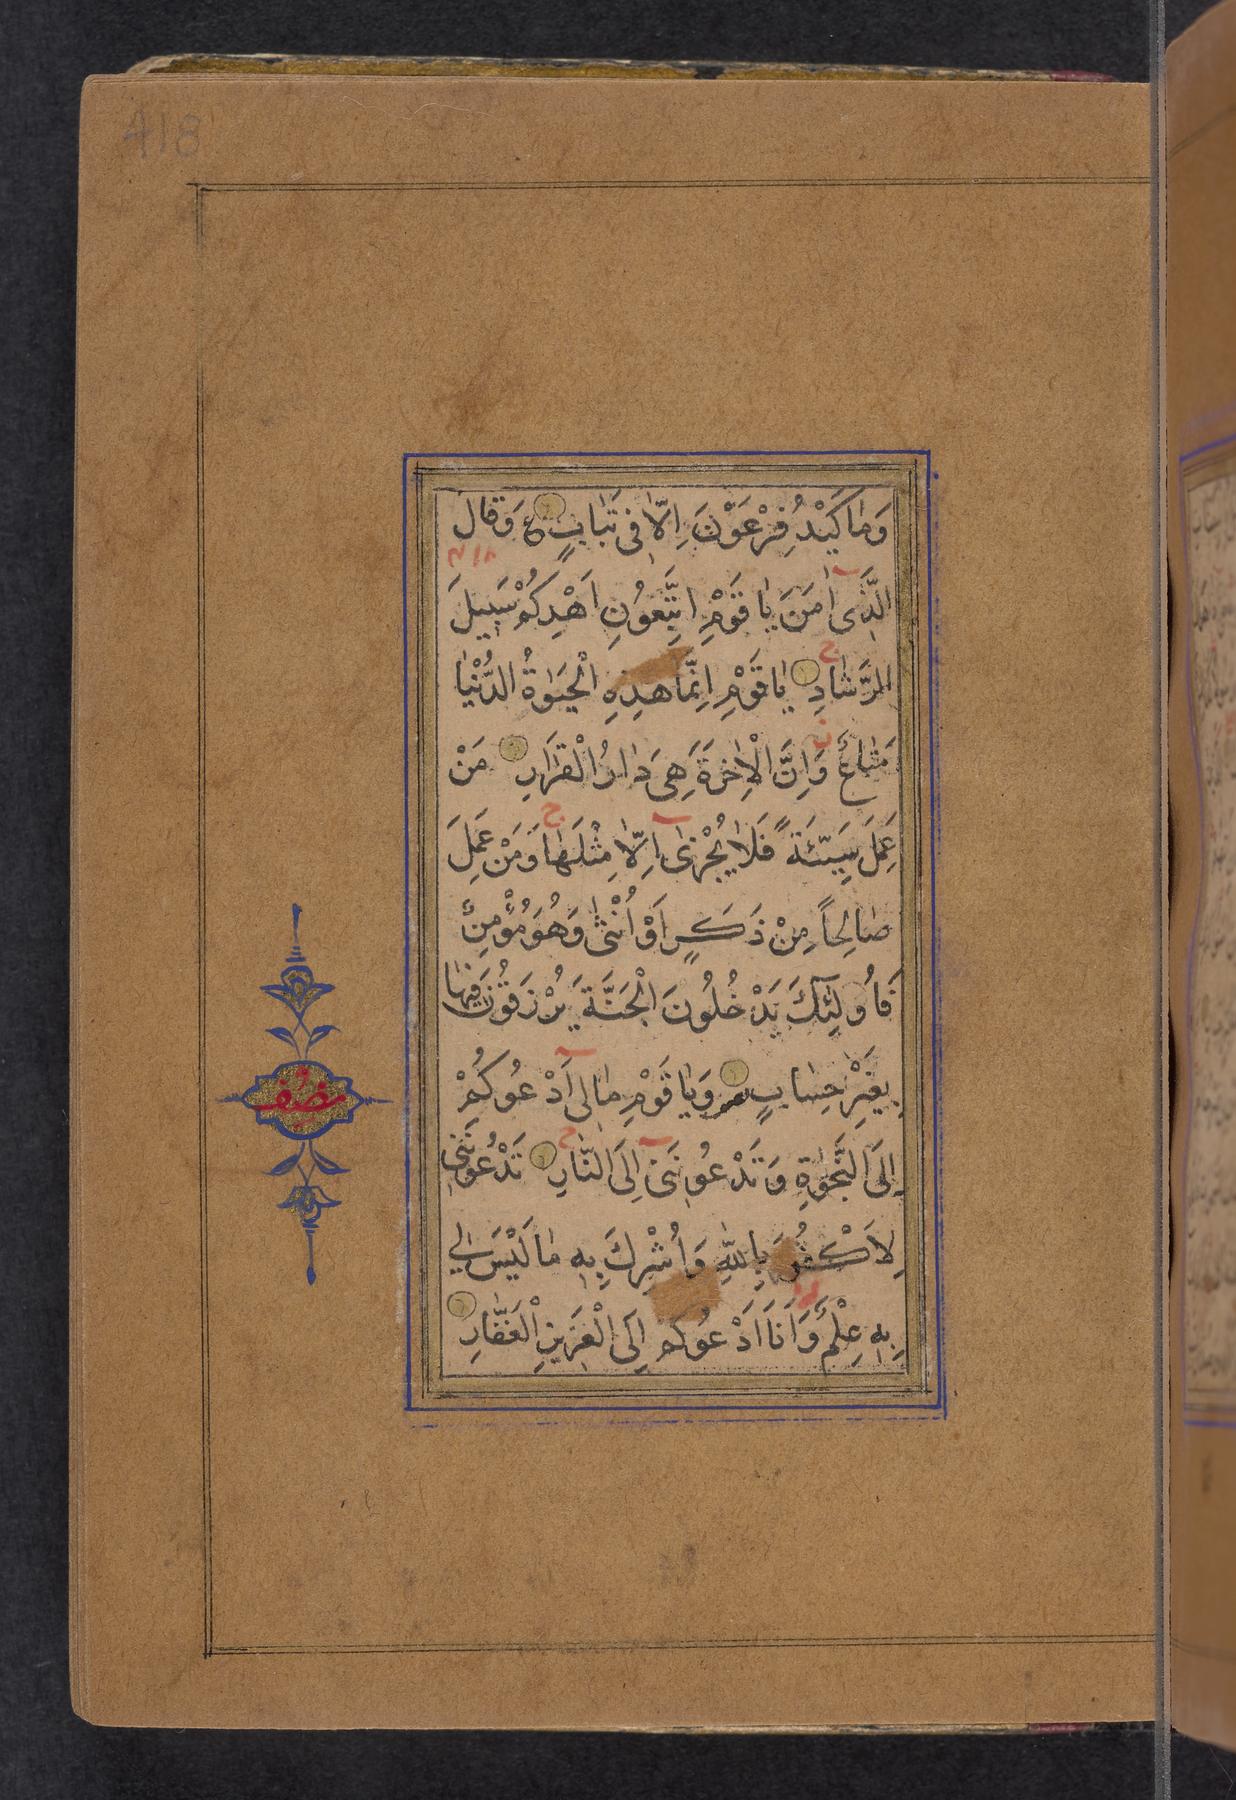 418
وَمَا كَيْدُ فِرْعَوْنَ اِلّٰا فى تَبٰابٍ ع وَقٰالَ
الَّذى اٰمَنَ يٰا قَوْمِ اتَّبِعُونِ اَهْدِكُمْ سَبيلَ
الرَّشٰادِ يٰا قَوْمِ اِنَّمٰا هٰذِهِ الْحَيٰوةُ الدُّنْيٰا
مَتٰاعٌ وَاِنَّ الْاٰخِرَةَ هِىَ دٰارُ الْقَرٰارِ مَنْ
عَمِلَ سَيِّئَةً فَلٰا يُجْزىٰ اِلّٰا مِثْلَهٰا وَمَنْ عَمِلَ
صٰالِحاً مِنْ ذَكَرٍ اَوْ اُنْثىٰ وَهُوَ مُؤْمِنٌ
فَاُولٰئِكَ يَدْخُلُونَ الْجَنَّةَ يُرْزَقُونَ فيهٰا
بِغَيْرِ حِسٰابٍ وَيٰا قَوْمِ مٰا لى اَدْعُوكُمْ
اِلَى النَّجٰوةِ وَتَدْعُونَنى اِلَى النّٰارِ تَدْعُونَنى
لِاَكْفُرَ بِاللّٰهِ وَاُشْرِكَ بِهِ مٰا لَيْسَ لى
بِهِ عِلْمٌ وَاَنَا اَدْعُوكُمْ اِلَى الْعَزيزِ الْغَفّٰارِ